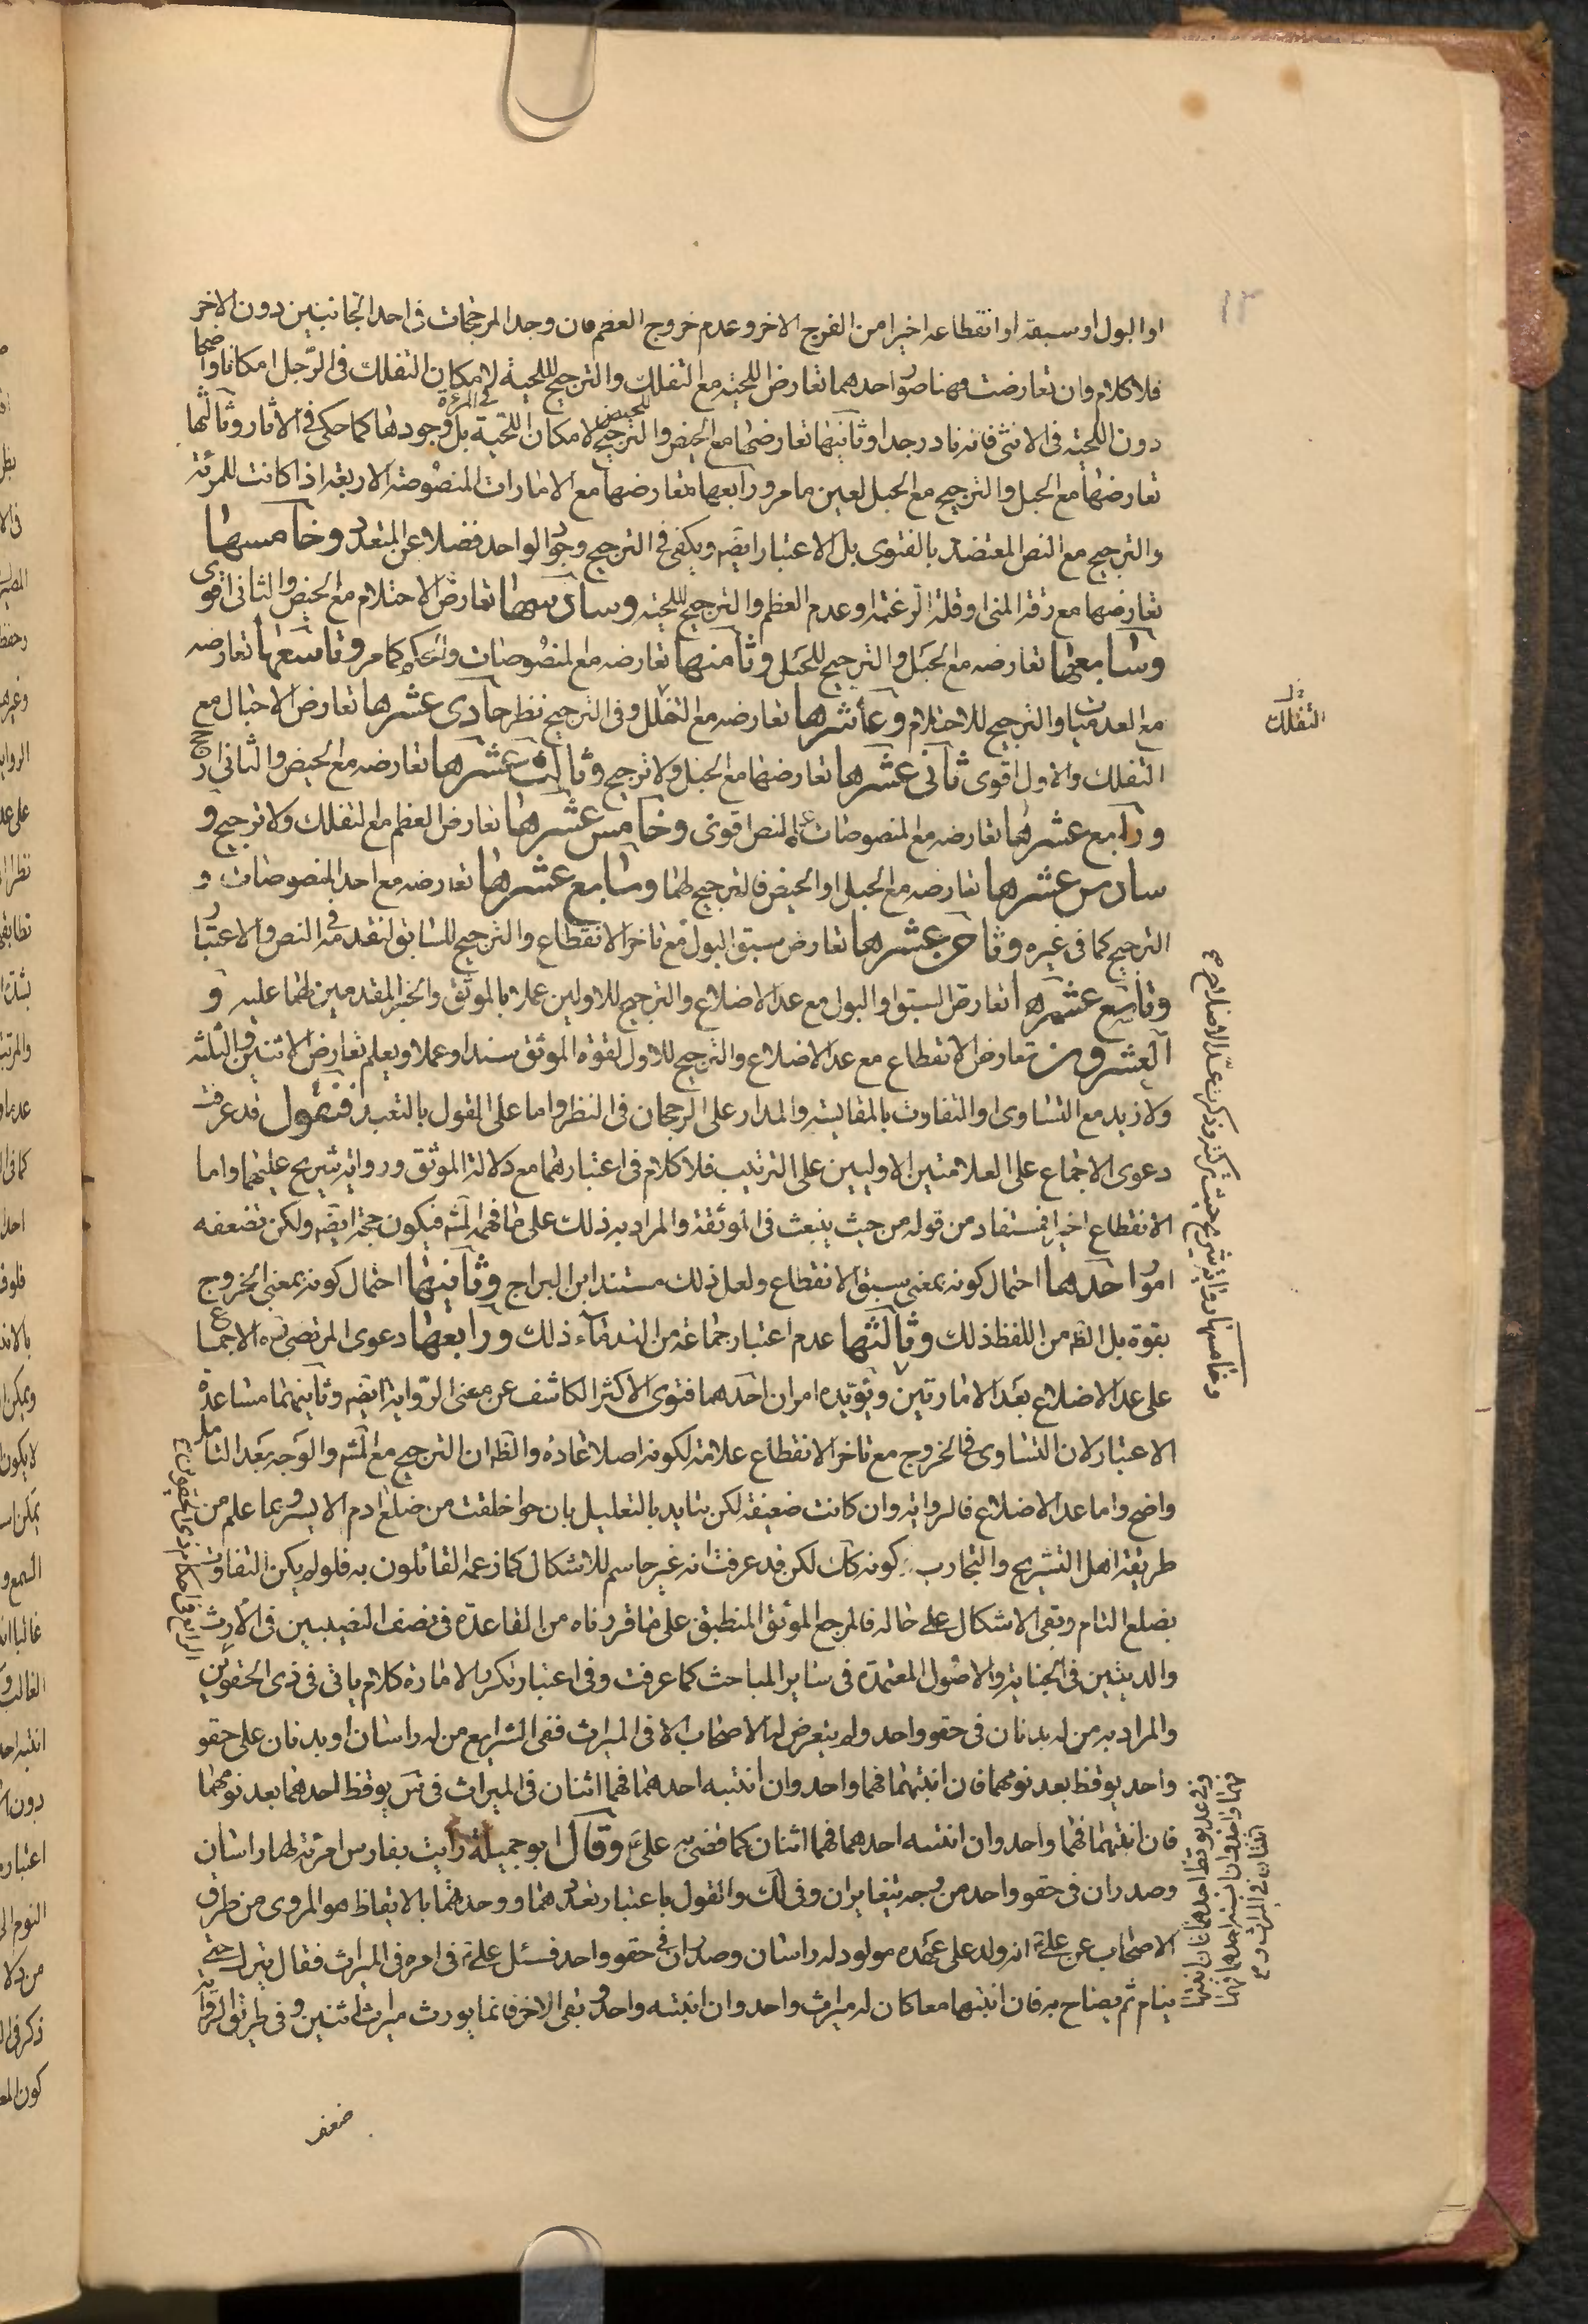 او البول او سبقه او انقطاعه اخيرا من الفرج الاخر وعدم خروج العظم فان وجد المرجحات فى احد الجانبين دون الاخر
فلا كلام وان تعارضت فهنا صور احدهما تعارض اللحية مع التفلك والترجيح لللحية لامكان التفلك فى الرّجل امكانا واضحا
دون اللحية فى الانثى فانه نادر جدا وثانيها تعارضها مع الحيض والترجيح للحيض لامكان اللحية فى المرئة بل وجودها كما حكى فى الاثار وثالثها
تعارضها مع الحبل والترجيح مع الحبل لعين ما مر ورابعها تعارضها مع الامارات المنصوصة الاربعة اذا كانت للمرئة
والترجيح مع النص المعتضد بالفتوى بل الاعتبار ايضه ويكفى فى الترجيح وجود الواحد فضلا عن المتعدد وخامسها
تعارضها مع رقة المنى او قلة الرغمة او عدم العظم والترجيح لللحية وسادسها تعارض الاحتلام مع الحيض والثانى اقوى
وسابعها تعارضه مع الحبل والترجيح للحبل وثامنها تعارضه مع المنصوصات والحكم كما مر وتاسعها تعارضه
مع العدميات والترجيح للاحتلام وعاشرها تعارضه مع التفلك وفى الترجيح نظر حادى عشرها تعارض الاحبال مع
التفلك والاول اقوى ثانى عشرها تعارضها مع الحبل ولا ترجيح وثالث عشرها تعارضه مع الحيض والثانى ارجح
ورابع عشرها تعارضه مع المنصوصات والنص اقوى وخامس عشرها تعارض العظم مع التفلك ولا ترجيح و
سادس عشرها تعارضه مع الحبل او الحيض فالترجيح لهما وسابع عشرها تعارضه مع احد المنصوصات و
الترجيح كما فى غيره وثامن عشرها تعارض سبق البول مع تاخر الانقطاع والترجيح للسابق لتقدمه فى النص والاعتبار
وتاسع عشرها تعارض السبق او البول مع عد الاضلاع والترجيح للاولين عملا بالموثق والخبر المقدمين لهما عليه و
العشرون تعارض الانقطاع مع عد الاضلاع والترجيح للاول لقوة الموثق سندا وعملا ويعلم تعارض الاثنين والثلثة
ولازيد مع التساوى او التفاوت بالمقايسة والمدار على الرجحان فى النظر واما على القول بالتعبد فنقول قد عرفت
دعوى الاجماع على العلامتين الاوليين على الترتيب فلا كلام فى اعتبارهما مع دلالة الموثق ورواية شريح عليهما واما
الانقطاع اخيرا فمستفاد من قوله من حيث ينبعث فى الموثقة والمراد به ذلك على ما فهمه المشه فيكون حجة ايضه ولكن تضعفه
امور احدها احتمال كونه بمعنى سبق الانقطاع ولعل ذلك مستند ابن البراج وثانيها احتمال كونه بمعنى الخروج
بقوة بل الظ من اللفظ ذلك وثالثها عدم اعتبار جماعة من القدماء ذلك ورابعها دعوى المرتضى ره الاجماع
على عد الاضلاع بعد الامارتين ويؤيده امران احدهما فتوى الاكثر الكاشف عن معنى الرواية ايضه وثانيهما مساعدة
الاعتبار لان التساوى فى الخروج مع تاخر الانقطاع علامة لكونه اصلا عادة والظ ان الترجيح مع المشه والوجه بعد التامل
واضح واما عد الاضلاع فالرواية وان كانت ضعيفة لكن يتايد بالتعليل بان حوا خلقت من ضلع ادم الايسر وبما علم من
طريقة اهل التشريح والتجارب كونه كك لكن قد عرفت انه غير حاسم للاشكال كما زعمه القائلون به فلو لم يكن التفاوت
بضلع التام وبقى الاشكال على حاله فالمرجع الموثق المنطبق على ما قررناه من القاعدة فى نصف النصيبين فى الارث
والديتين فى الجناية والاصول المعتمدة فى ساير المباحث كما عرفت وفى اعتبار تكرر الامارة كلام ياتى فى ذى الحقوين
والمراد به من له بدنان فى حقو واحد ولم يتعرض له الاصحاب الا فى الميراث ففى الشرايع من له راسان او بدنان على حقو
واحد يوقظ بعد نومهما فان انتبهتما فهما واحد وان انتبه احدهما فهما اثنان فى الميراث فى س يوقظ احدهما بعد نومهما
فان انتبهتما فهما واحد وان انتبه احدهما فهما اثنان كما قضى به علىّ وقال ابو جميلة رايت بفارس امرئة لها راسان
وصدران فى حقو واحد من وجه يتغايران وفى لك والقول باعتبار تعددهما ووحدتهما بالايقاظ هو المروى من طرق
الاصحاب عن علىّ انه ولد على عهده مولود له راسان وصدران فى حقو واحد فسئل علىّ فى امره فى الميراث فقال يترك حتى
ينام ثم يصاح به فان انتبها معا كان له ميراث واحد وان انتبه واحد وبقى الاخر فانما يورث ميراث اثنين وفى طريق الرواية
ضعف
التفلك
وخامسها رواية شريح حيث لم يذكر عدّ الاضلاع
الرابع فى احكام ذى الحقوين
وفى عد يوقظ احدهما فان انتبهتما
فهما واحد وان انتبه احدهما فهما
اثنان فى الميراث